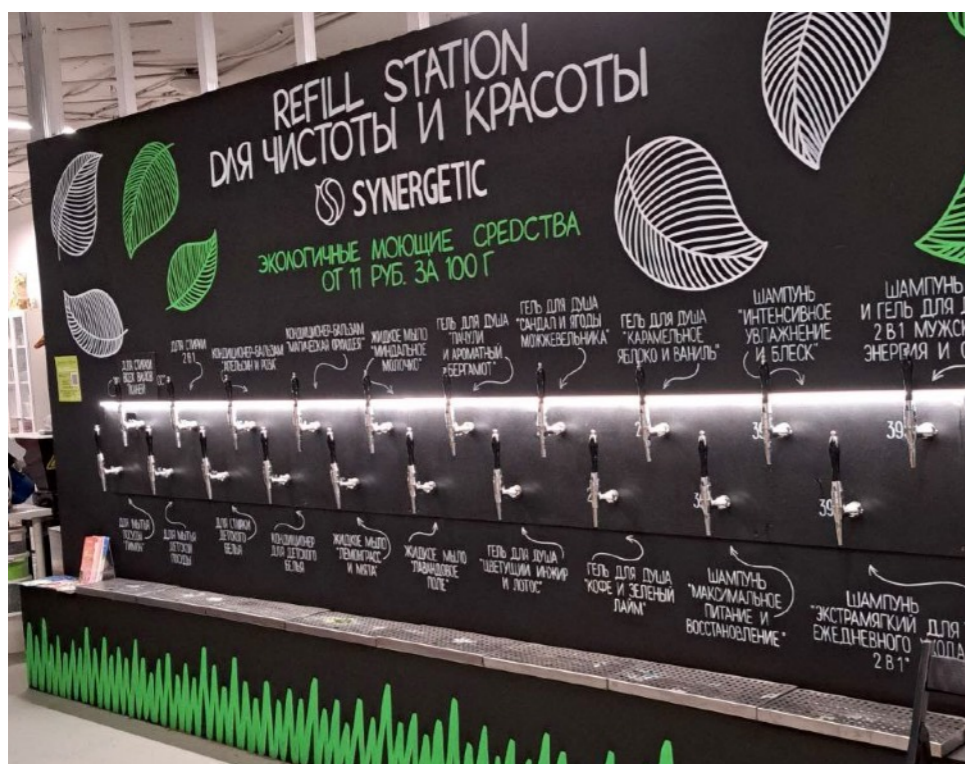 REFILL STATION
ДЛЯ ЧИСТОТЫ И КРАСОТЫ
SYNERGETIC
ЭКОЛОГИЧНЫЕ МОЮЩИЕ СРЕДСТВА
ОТ 11 РУБ. ЗА 100 Г
ДЛЯ СТИРКИ
ВСЕХ ВИДОВ
ТКАНЕЙ
ДЛЯ СТИРКИ
2 В 1
КОНДИЦИОНЕР-БАЛЬЗАМ
"АПЕЛЬСИН И РОЗА"
КОНДИЦИОНЕР-БАЛЬЗАМ
"МАГИЧЕСКАЯ ФРУАДЕЯ"
ЖИДКОЕ МЫЛО
"МИНДАЛЬНОЕ
МОЛОЧКО"
ГЕЛЬ ДЛЯ ДУША
"ПАЧУЛИ
И АРОМАТНЫЙ
БЕРГАМОТ"
ГЕЛЬ ДЛЯ ДУША
"САНДАЛ И ЯГОДЫ
МОЖЖЕВЕЛЬНИКА"
ГЕЛЬ ДЛЯ ДУША
"КАРАМЕЛЬНОЕ
ЯБЛОКО И ВАНИЛЬ"
ШАМПУНЬ
"ИНТЕНСИВНОЕ
УВЛАЖНЕНИЕ
И БЛЕСК"
ШАМПУНЬ
И ГЕЛЬ ДЛЯ
2 В 1 МУЖСК
ЭНЕРГИЯ И С
39
39
ДЛЯ МЫТЬЯ
ПОСУДЫ
"ЛИМОН"
ДЛЯ МЫТЬЯ
ДЕТСКОЙ
ПОСУДЫ
ДЛЯ СТИРКИ
ДЕТСКОГО
БЕЛЬЯ
КОНДИЦИОНЕР
ДЛЯ ДЕТСКОГО
БЕЛЬЯ
ЖИДКОЕ МЫЛО
"ЛЕМОНГРАСС
И МЯТА"
ЖИДКОЕ МЫЛО
"ЛАВАНДОВОЕ
ПОЛЕ"
ГЕЛЬ ДЛЯ ДУША
"ЦВЕТУЩИЙ ИНЖИР
И ЛОТОС"
ГЕЛЬ ДЛЯ ДУША
"КОФЕ И ЗЕЛЕНЫЙ
ЛАЙМ"
ШАМПУНЬ
"МАКСИМАЛЬНОЕ
ПИТАНИЕ И
ВОССТАНОВЛЕНИЕ"
ШАМПУНЬ
"ЭКСТРАМЯГКИЙ ДЛЯ
ЕЖЕДНЕВНОГО УХОДА
2 В 1"